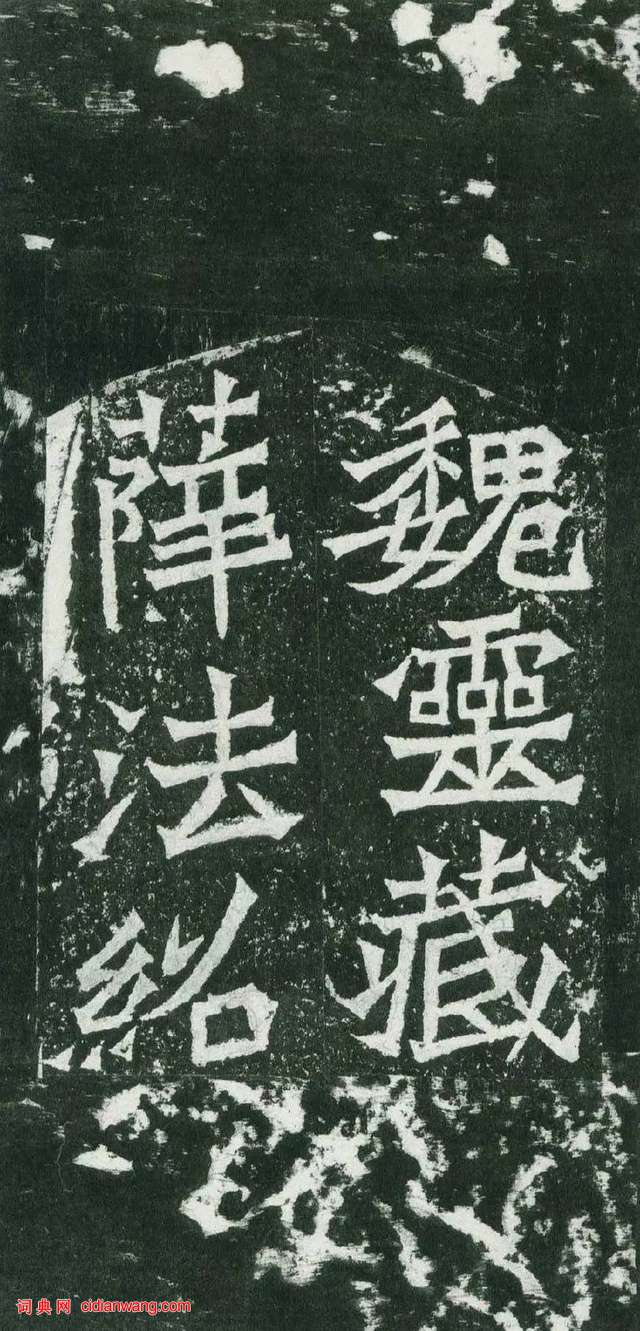 魏靈藏
薛法紹
词典网 cidianwang.com